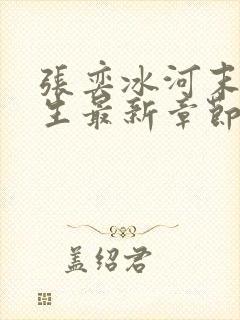 張奕冰河末
生最新章節
盖绍君